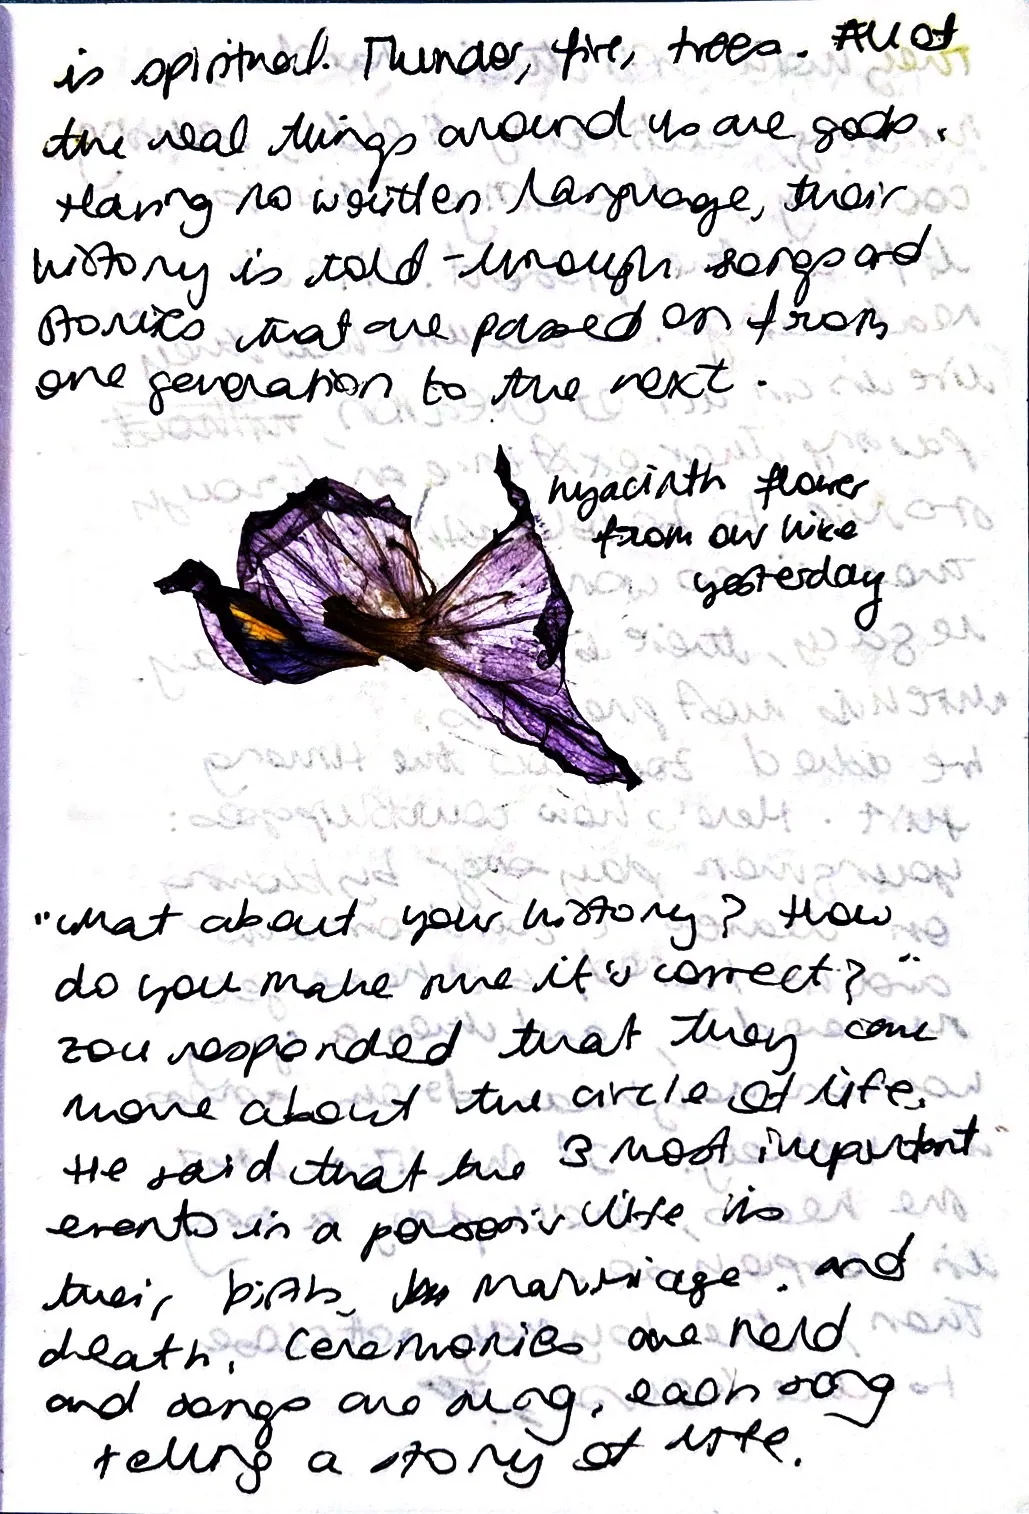 is spiritual. Thunder, fire, trees. All of
the real things around us are gods.
Having no written language, their
history is told through songs and
stories that are passed on from
one generation to the next.
hyacinth flower
from our hike
yesterday
"What about your history? How
do you make sure it's correct?"
Zou responded that they care
more about the circle of life.
He said that the 3 most important
events in a person's life is
their birth, marriage, and
death. Ceremonies are held
and songs are sung, each song
telling a story of life.